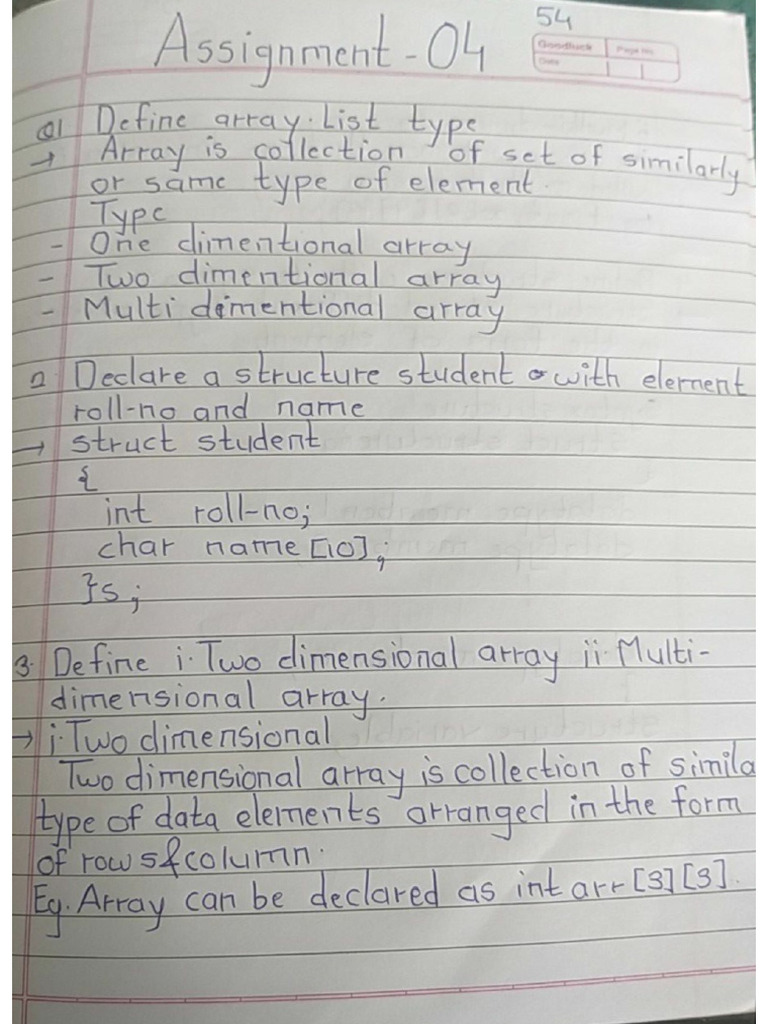 54
Assignment - 04
Goodluck Page No.
Date
Q1 Define array. List type
→ Array is collection of set of similarly
or same type of element.
Type
- One dimentional array
- Two dimentional array
- Multi dimentional array
2 Declare a structure student with element
roll-no and name
→ struct student
{
int roll-no;
char name [10];
}s;
3. Define i. Two dimensional array ii. Multi-
dimensional array.
→ i. Two dimensional
Two dimensional array is collection of simila
type of data elements arranged in the form
of rows & column.
Eg. Array can be declared as int arr [3][3].